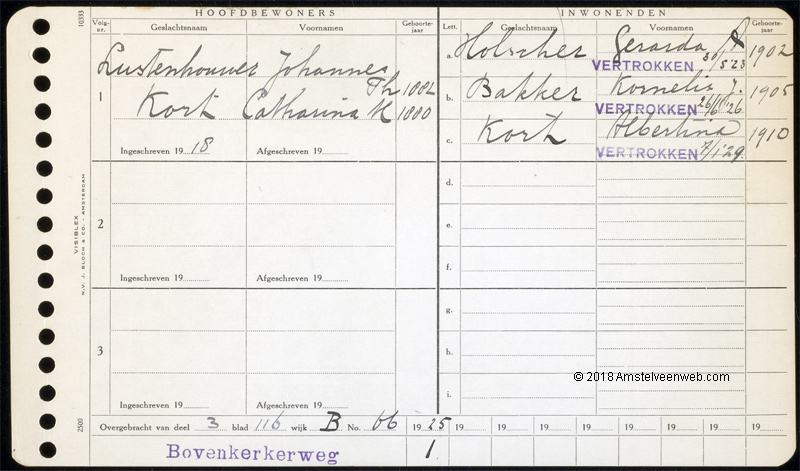 HOOFDBEWONERS
INWONENDEN
10333
Volg-nr. Geslachtsnaam Voornamen Geboorte-jaar
Lett. Geslachtsnaam Voornamen Geboorte-jaar
1 Lustenhouwer Johannes
Th 1882
Kort Catharina M 1880
Ingeschreven 1918 Afgeschreven 19
a. Holscher Gerarda 1902
VERTROKKEN 30/5 23
b. Bakker Kornelis J. 1905
VERTROKKEN 26
c. Kort Albertina 1910
VERTROKKEN 7/1 '29.
2
Ingeschreven 19 Afgeschreven 19
d.
e.
f.
3
Ingeschreven 19 Afgeschreven 19
g.
h.
i.
VISIBLEX
N.V. J. BLOCH & CO. - AMSTERDAM
2500
© 2018 Amstelveenweb.com
Overgebracht van deel 3 blad 116 wijk B No. 66 1925 19 19 19 19 19 19 19 19
Bovenkerkerweg 1.